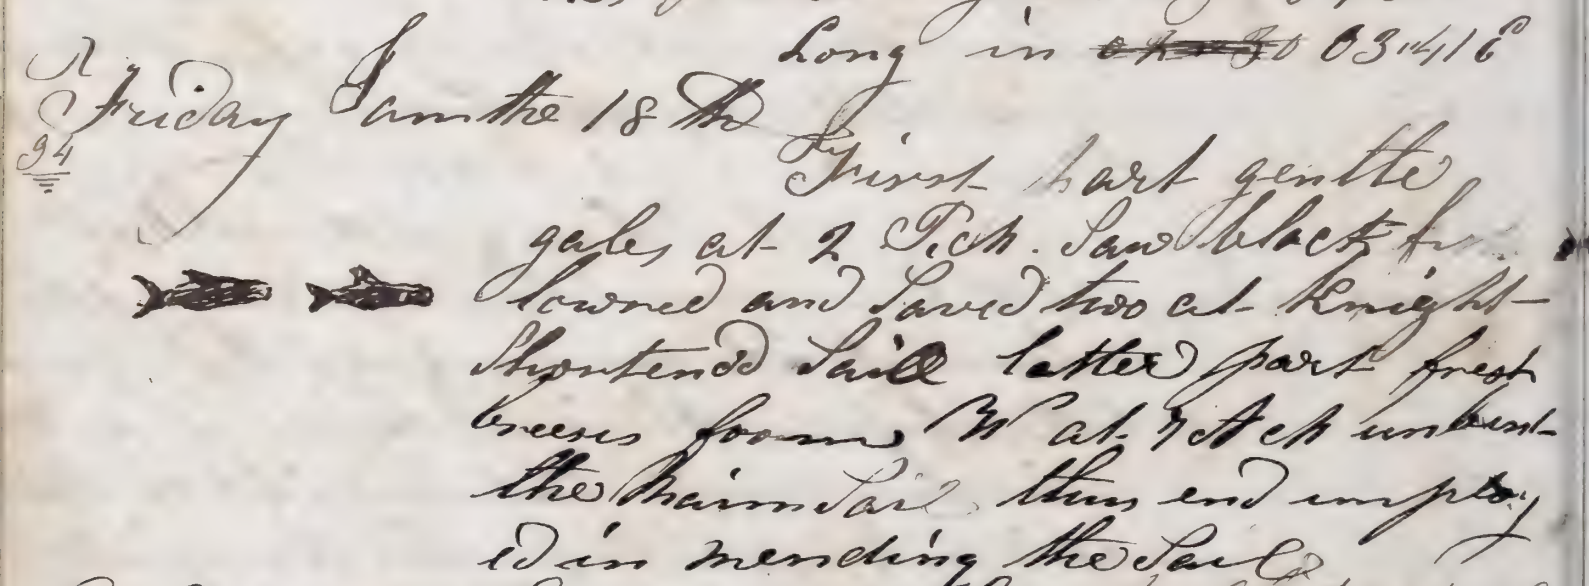 Long in 03"41 E
Friday Jam the 18 Th
94
First part gentle
gales at 2 P.M. Saw black f
lowred and Saved two at Knight
Shortend Saill latter part fresh
breeses foorm W at 7 A M unbent
the Mainsail thus end imploy
id in mending the Sail